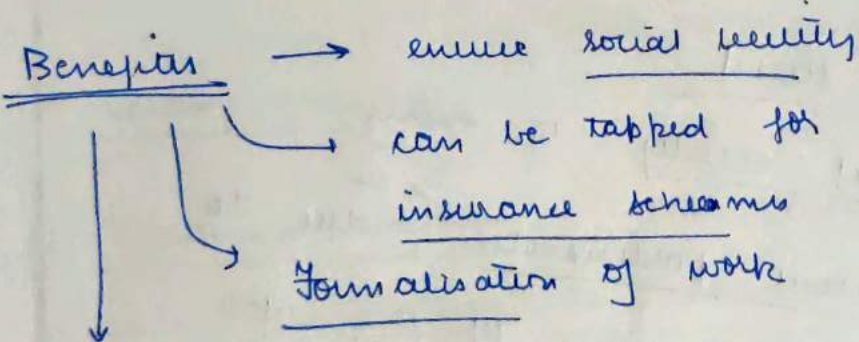 Benefits → ensure social security
can be tapped for
insurance schemes
Formalisation of work